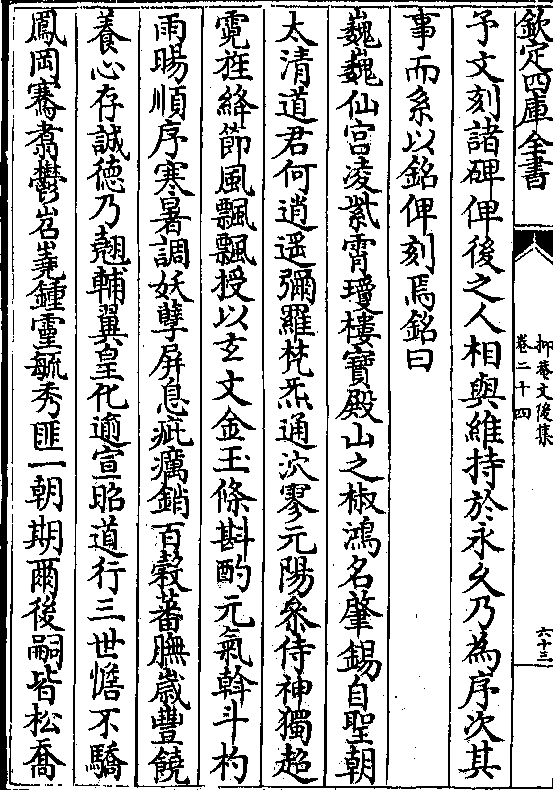 欽定四庫全書
抑菴文後集
卷二十四
六十三
予文刻諸碑俾後之人相與維持於永久乃為序次其
事而系以銘俾刻焉銘曰
巍巍仙宮凌紫霄瓊樓寶殿山之椒鴻名肇錫自聖朝
太清道君何逍遥彌羅梵炁通泬寥元陽叅侍神獨超
霓旌絳節風飄飄授以玄文金玉條斟酌元氣斡斗杓
雨暘順序寒暑調妖孽屏息疵癘銷百穀蕃膴歲豐饒
養心存誠德乃翹輔翼皇化遹宣昭道行三世㦓不驕
鳳岡騫翥鬱岧嶤鍾靈毓秀匪一朝期爾後嗣皆松喬